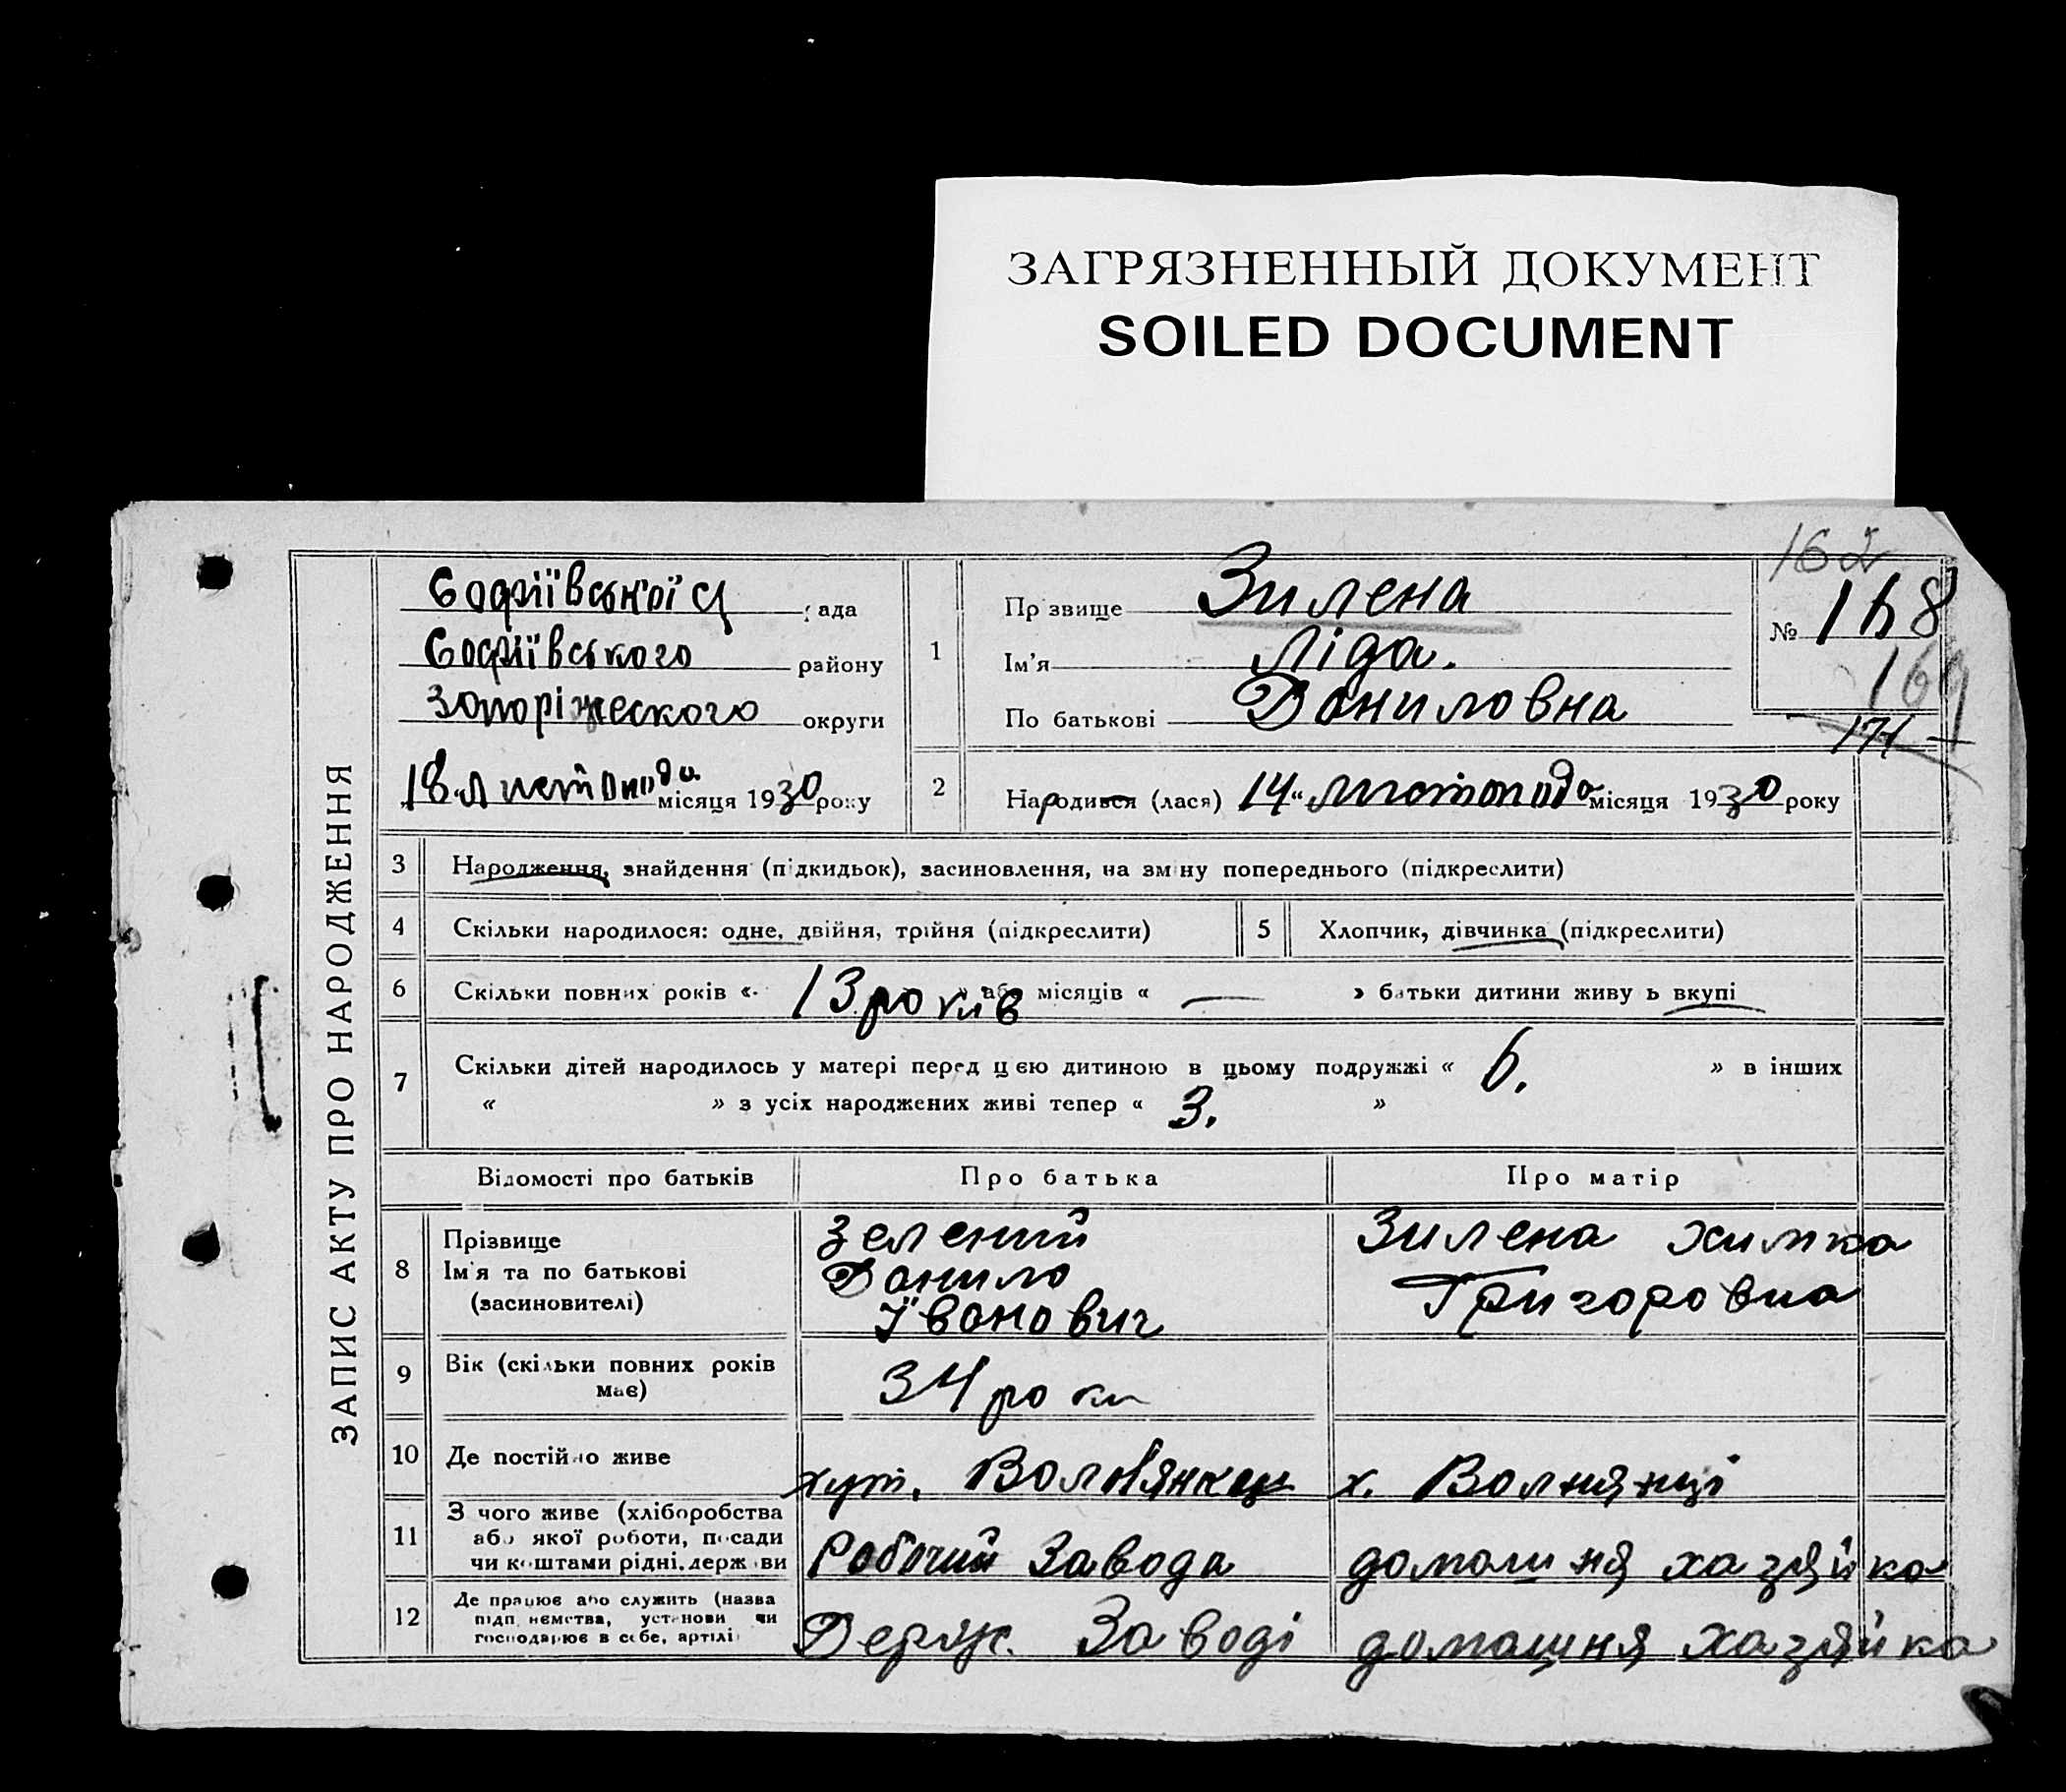 ЗАГРЯЗНЕННЫЙ ДОКУМЕНТ
SOILED DOCUMENT
ЗАПИС АКТУ ПРО НАРОДЖЕННЯ
Софіївської с рада
Софіївського району
Запоріжеского округи
18 „листопада місяця 1930 року
1
Прізвище Зилена
Ім'я Ліда.
По батькові Даниловна
162
№ 168
169
171
2 Народився (лася) 14 „ листопада місяця 1930 року
3 Народження, знайдення (підкидьок), засиновлення, на зміну попереднього (підкреслити)
4 Скільки народилося: одне, двійня, трійня (підкреслити)
5 Хлопчик, дівчинка (підкреслити)
6 Скільки повних років « 13 років » або місяців « — » батьки дитини живуть вкупі
7 Скільки дітей народилось у матері перед цією дитиною в цьому подружжі « 6. » в інших
« » з усіх народжених живі тепер « 3. »
Відомості про батьків Про батька Про матір
8 Прізвище
Ім'я та по батькові
(засиновителі)
Зелений
Данило
Їванович
Зилена Химка
Григоровна
9 Вік (скільки повних років
має)
34 роки
10 Де постійно живе
хут. Волнянці
х. Волнянці
11 З чого живе (хліборобства
або якої роботи, посади
чи коштами рідні, держави
Робочий Завода
домашня хазяйка
12 Де працює або служить (назва
підприємства, установи чи
господарює в себе, артілі)
Держ. Заводі
домашня хазяйка